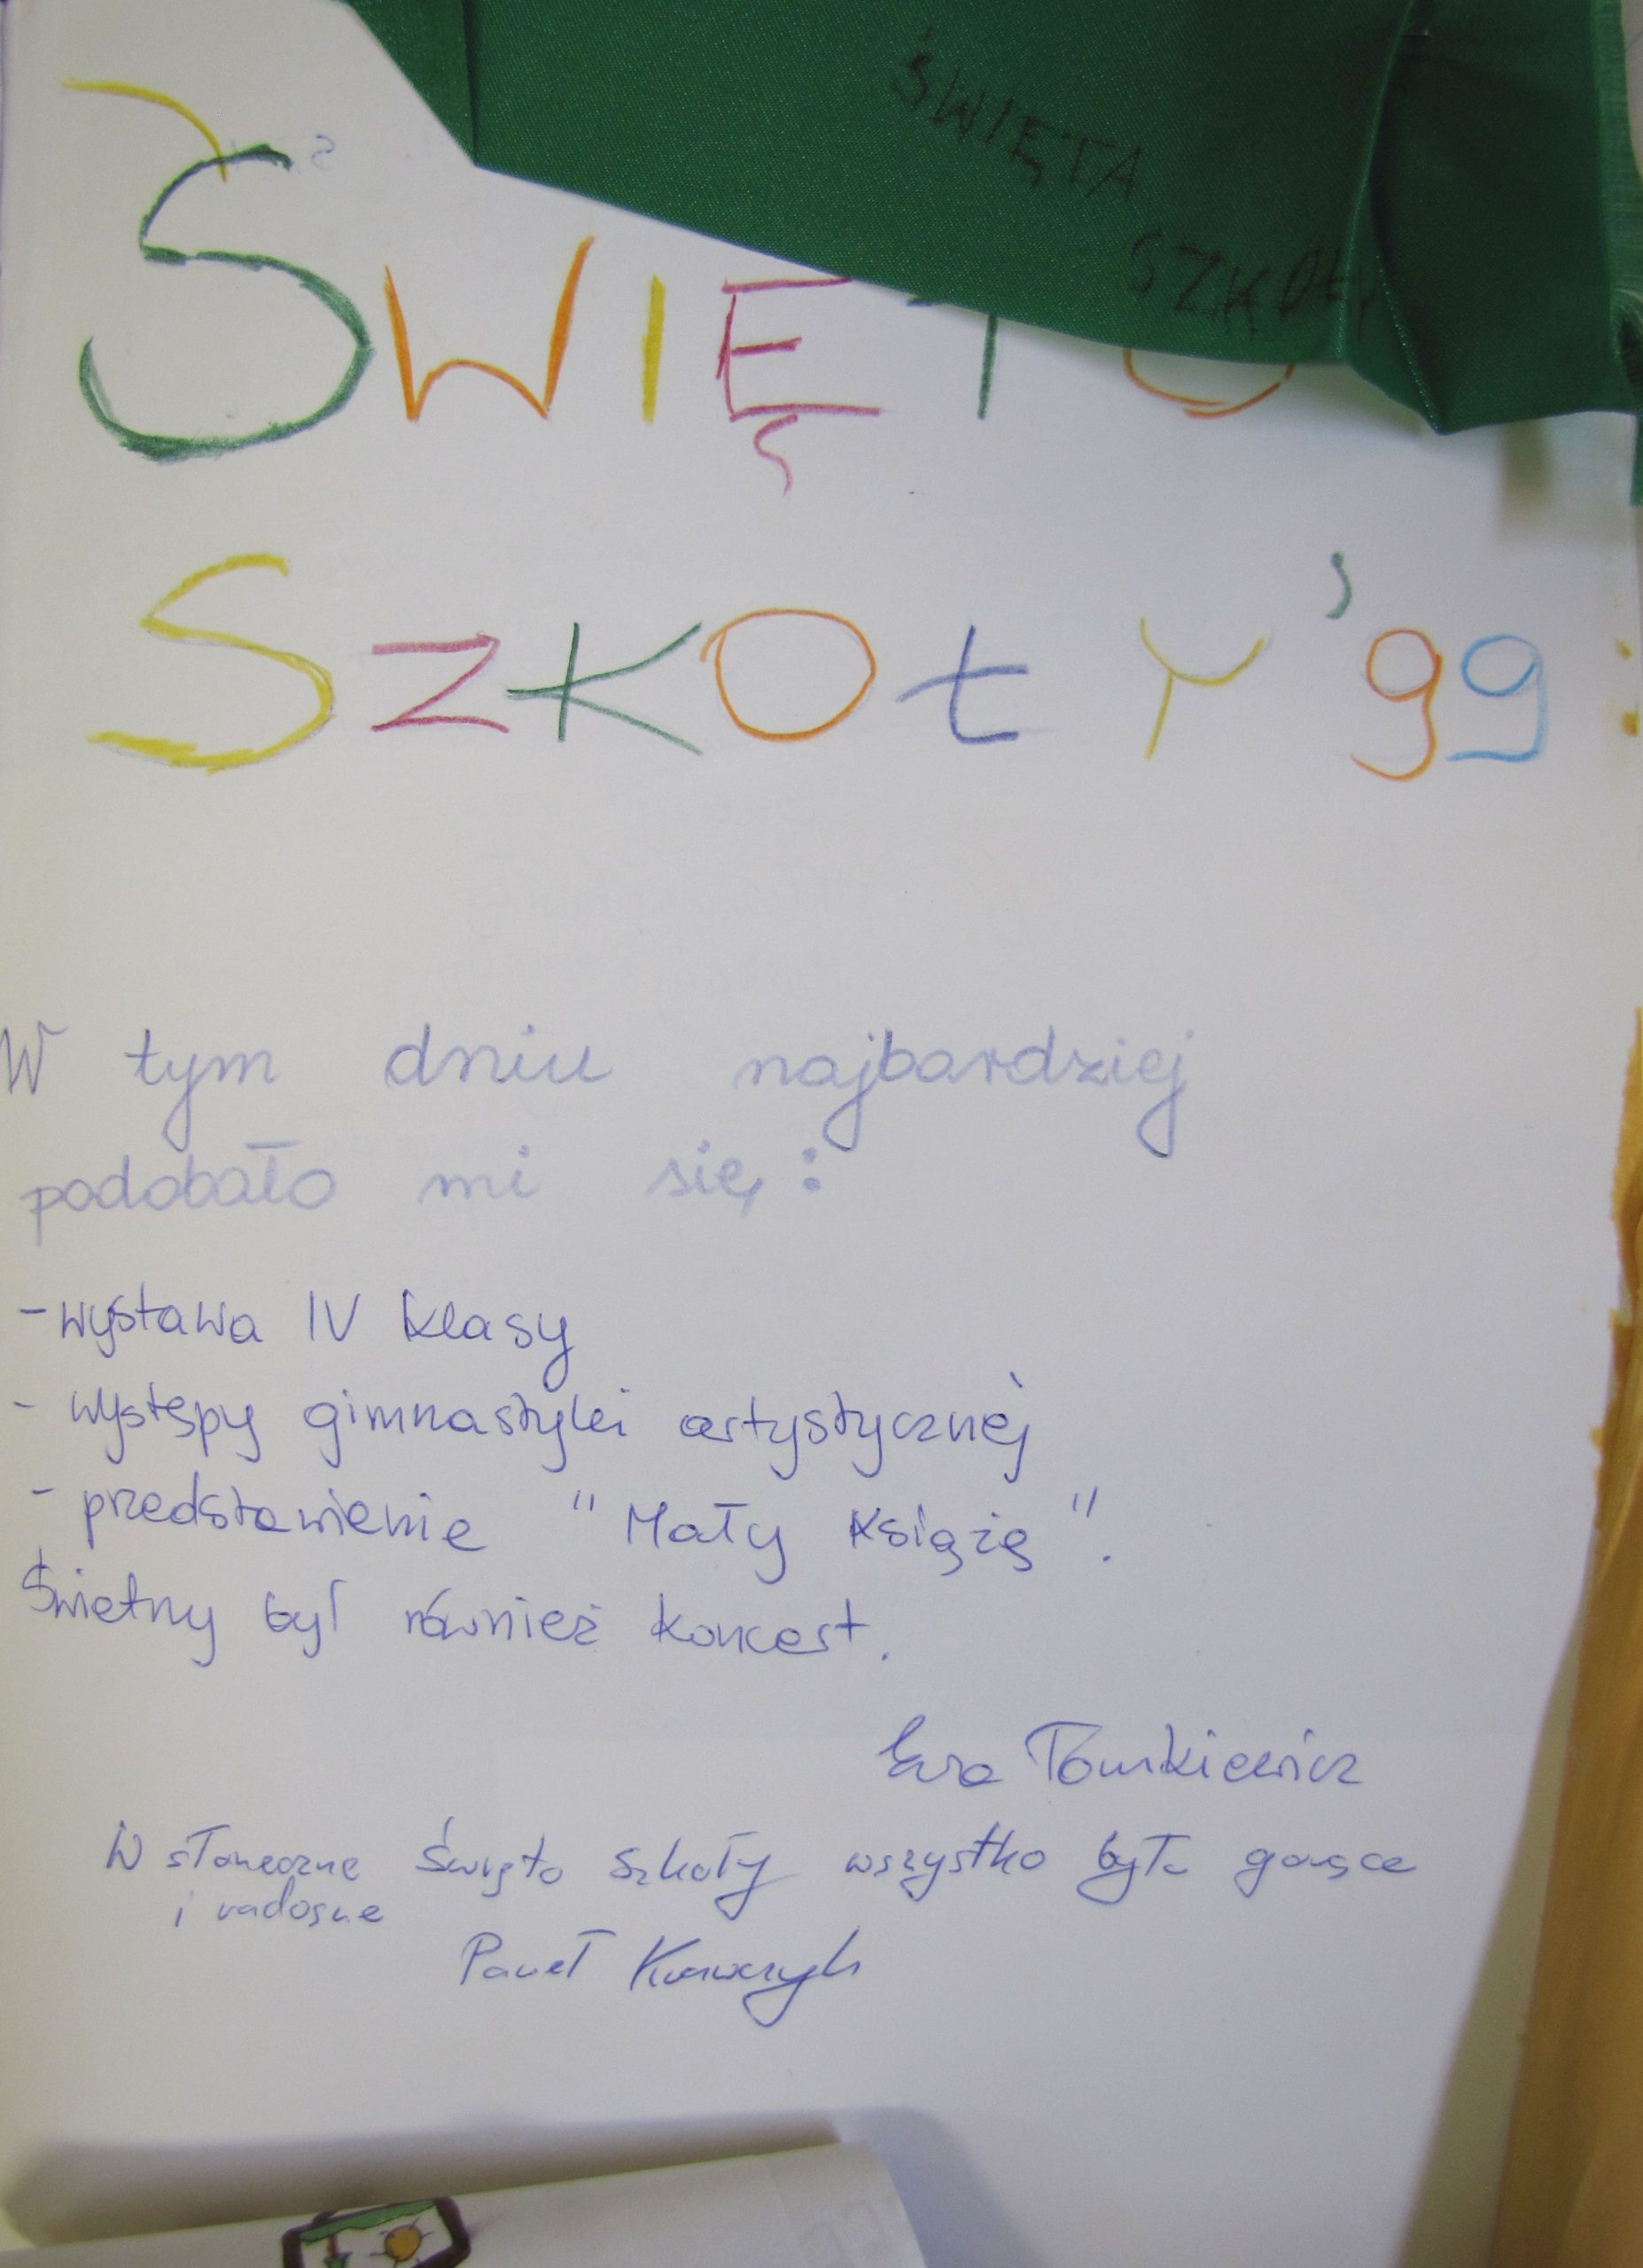 ŚWIĘTA
SZKOŁY
ŚWIĘTO
SZKOŁY '99
W tym dniu najbardziej
podobało mi się:
- wystawa IV klasy
- występy gimnastyki artystycznej
- przedstawienie "Mały Książę".
Świetny był również koncert.
Ewa Tomkiewicz
W słoneczne Święto Szkoły wszystko było gorące
i radosne
Paweł